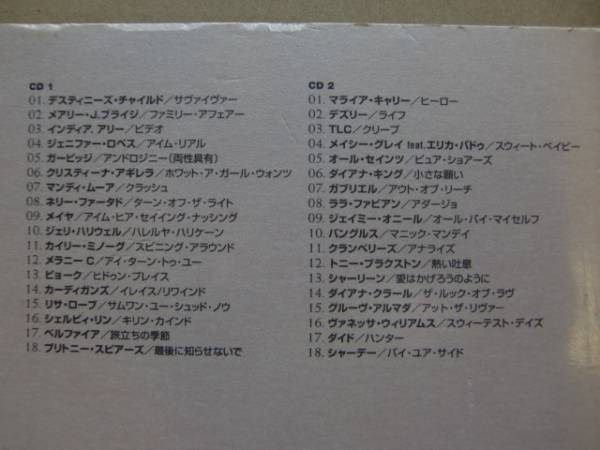 CD 1
01. デスティニーズ・チャイルド／サヴァイヴァー
02. メアリー・J.ブライジ／ファミリー・アフェアー
03. インディア. アリー／ビデオ
04. ジェニファー・ロペス／アイム・リアル
05. ガービッジ／アンドロジニー（両性具有）
06. クリスティーナ・アギレラ／ホワット・ア・ガール・ウォンツ
07. マンディ・ムーア／クラッシュ
08. ネリー・ファータド／ターン・オフ・ザ・ライト
09. メイヤ／アイム・ヒア・セイイング・ナッシング
10. ジェリ・ハリウェル／ハレルヤ・ハリケーン
11. カイリー・ミノーグ／スピニング・アラウンド
12. メラニー C／アイ・ターン・トゥ・ユー
13. ビョーク／ヒドゥン・プレイス
14. カーディガンズ／イレイス/リワインド
15. リサ・ローブ／サムワン・ユー・シュッド・ノウ
16. シェルビィ・リン／キリン・カインド
17. ベルファイア／旅立ちの季節
18. ブリトニー・スピアーズ／最後に知らせないで
CD 2
01. マライア・キャリー／ヒーロー
02. デズリー／ライフ
03. TLC／クリープ
04. メイシー・グレイ feat.エリカ・バドゥ／スウィート・ベイビー
05. オール・セインツ／ピュア・ショアーズ
06. ダイアナ・キング／小さな願い
07. ガブリエル／アウト・オブ・リーチ
08. ララ・ファビアン／アダージョ
09. ジェイミー・オニール／オール・バイ・マイセルフ
10. バングルス／マニック・マンデイ
11. クランベリーズ／アナライズ
12. トニー・ブラクストン／熱い吐息
13. シャーリーン／愛はかげろうのように
14. ダイアナ・クラール／ザ・ルック・オブ・ラヴ
15. グルーヴ・アルマダ／アット・ザ・リヴァー
16. ヴァネッサ・ウィリアムス／スウィーテスト・デイズ
17. ダイド／ハンター
18. シャーデー／バイ・ユア・サイド